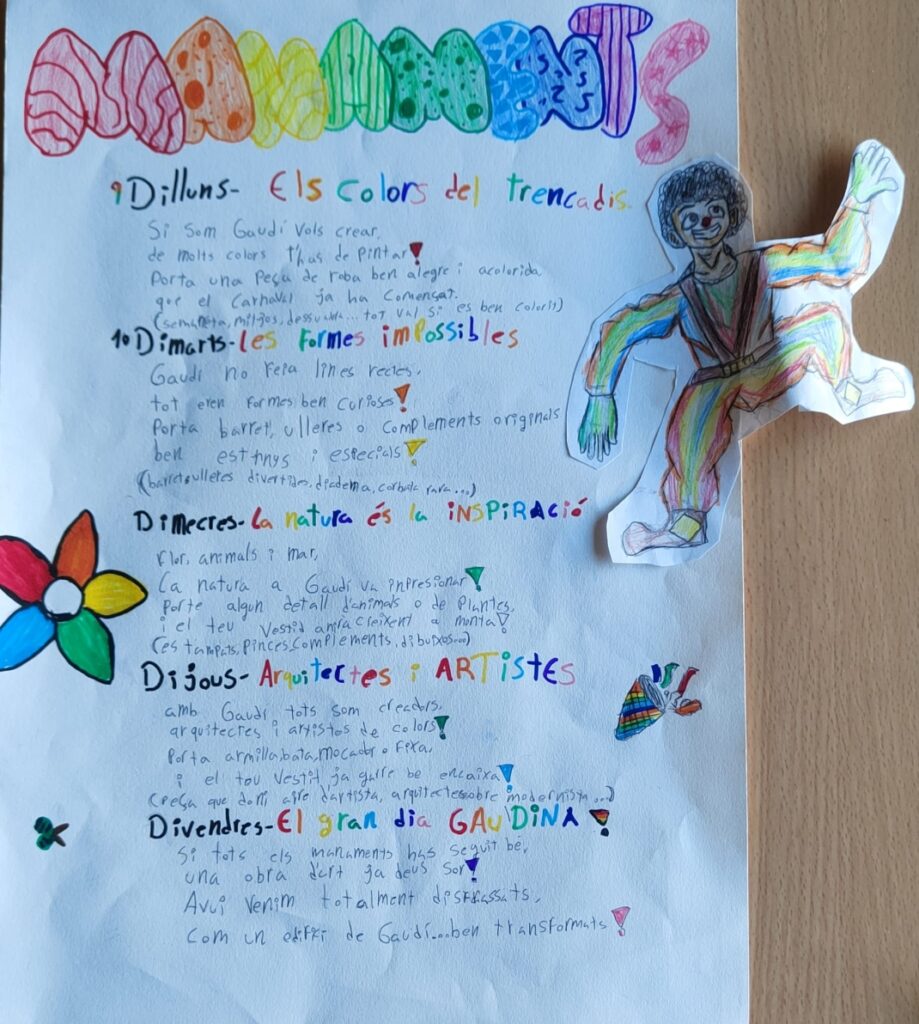 MANAMENTS
9 Dilluns- Els colors del trencadis
Si som Gaudí vols crear,
de molts colors t'has de pintar!
Porta una peça de roba ben alegre i acolorida
que el Carnaval ja ha començat.
(samarreta, mitjos, dessuadora... tot val si es ben colorit)
10 Dimarts- Les formes impossibles
Gaudí no feia línes rectes,
tot eren formes ben curioses!
Porta barret, ulleres o complements originals
ben estranys i especials!
(barrets, ulleres divertides, diadema, corbata rara...)
Dimecres- La natura és la INSPIRACIÓ
Flor, animals i mar,
La natura a Gaudí va inpresionar!
Porte algun detall d'animals o de plantes,
i el teu vestid anirà creixent a monta!
(estampats, pinces, complements, dibuixos...)
Dijous- Arquitectes i ARTISTES
amb Gaudí, tots som creadors,
arquitectes i artistes de colors!
Porta armilla, bata, mocador o faixa,
i el teu vestit ja gaire be encaixa!
(peça que doni aire d'artista, arquitecte, sobre modernista...)
Divendres- El gran dia GAUDINA!
Si tots els manaments has seguit bé,
una obra d'art ja deus ser!
Avui venim totalment disfrassats,
com un edifici de Gaudí... ben transformats!